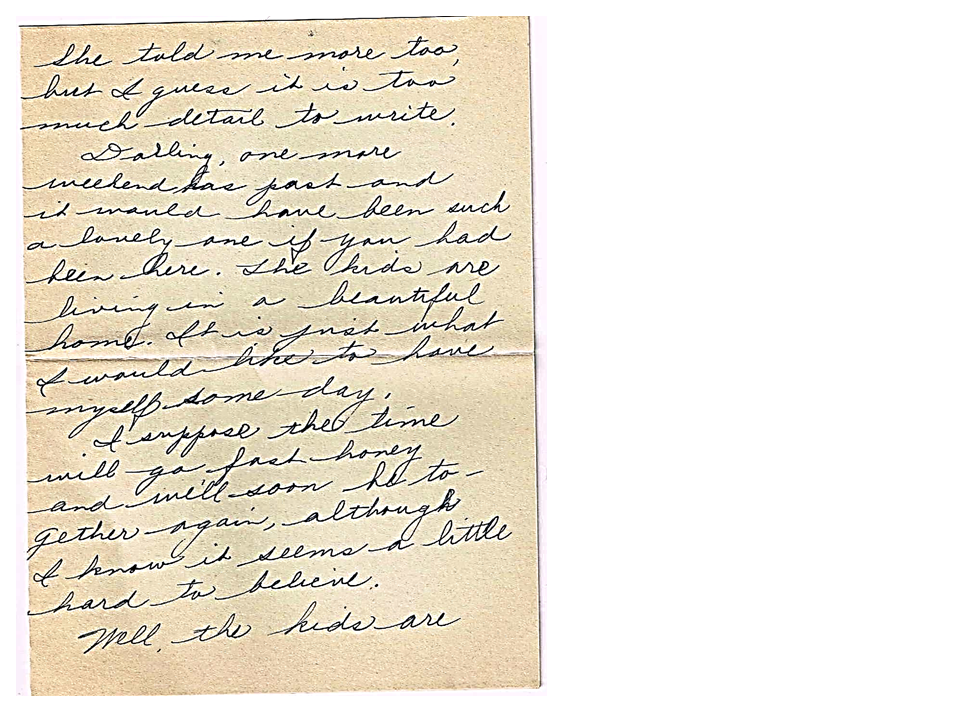 She told me more too,
but I guess it is too
much detail to write.
Darling, one more
weekend has past and
it would have been such
a lovely one if you had
been here. The kids are
living in a beautiful
home. It is just what
I would like to have
myself some day.
I suppose the time
will go fast honey
and we'll soon be to-
gether again, although
I know it seems a little
hard to believe.
Well, the kids are